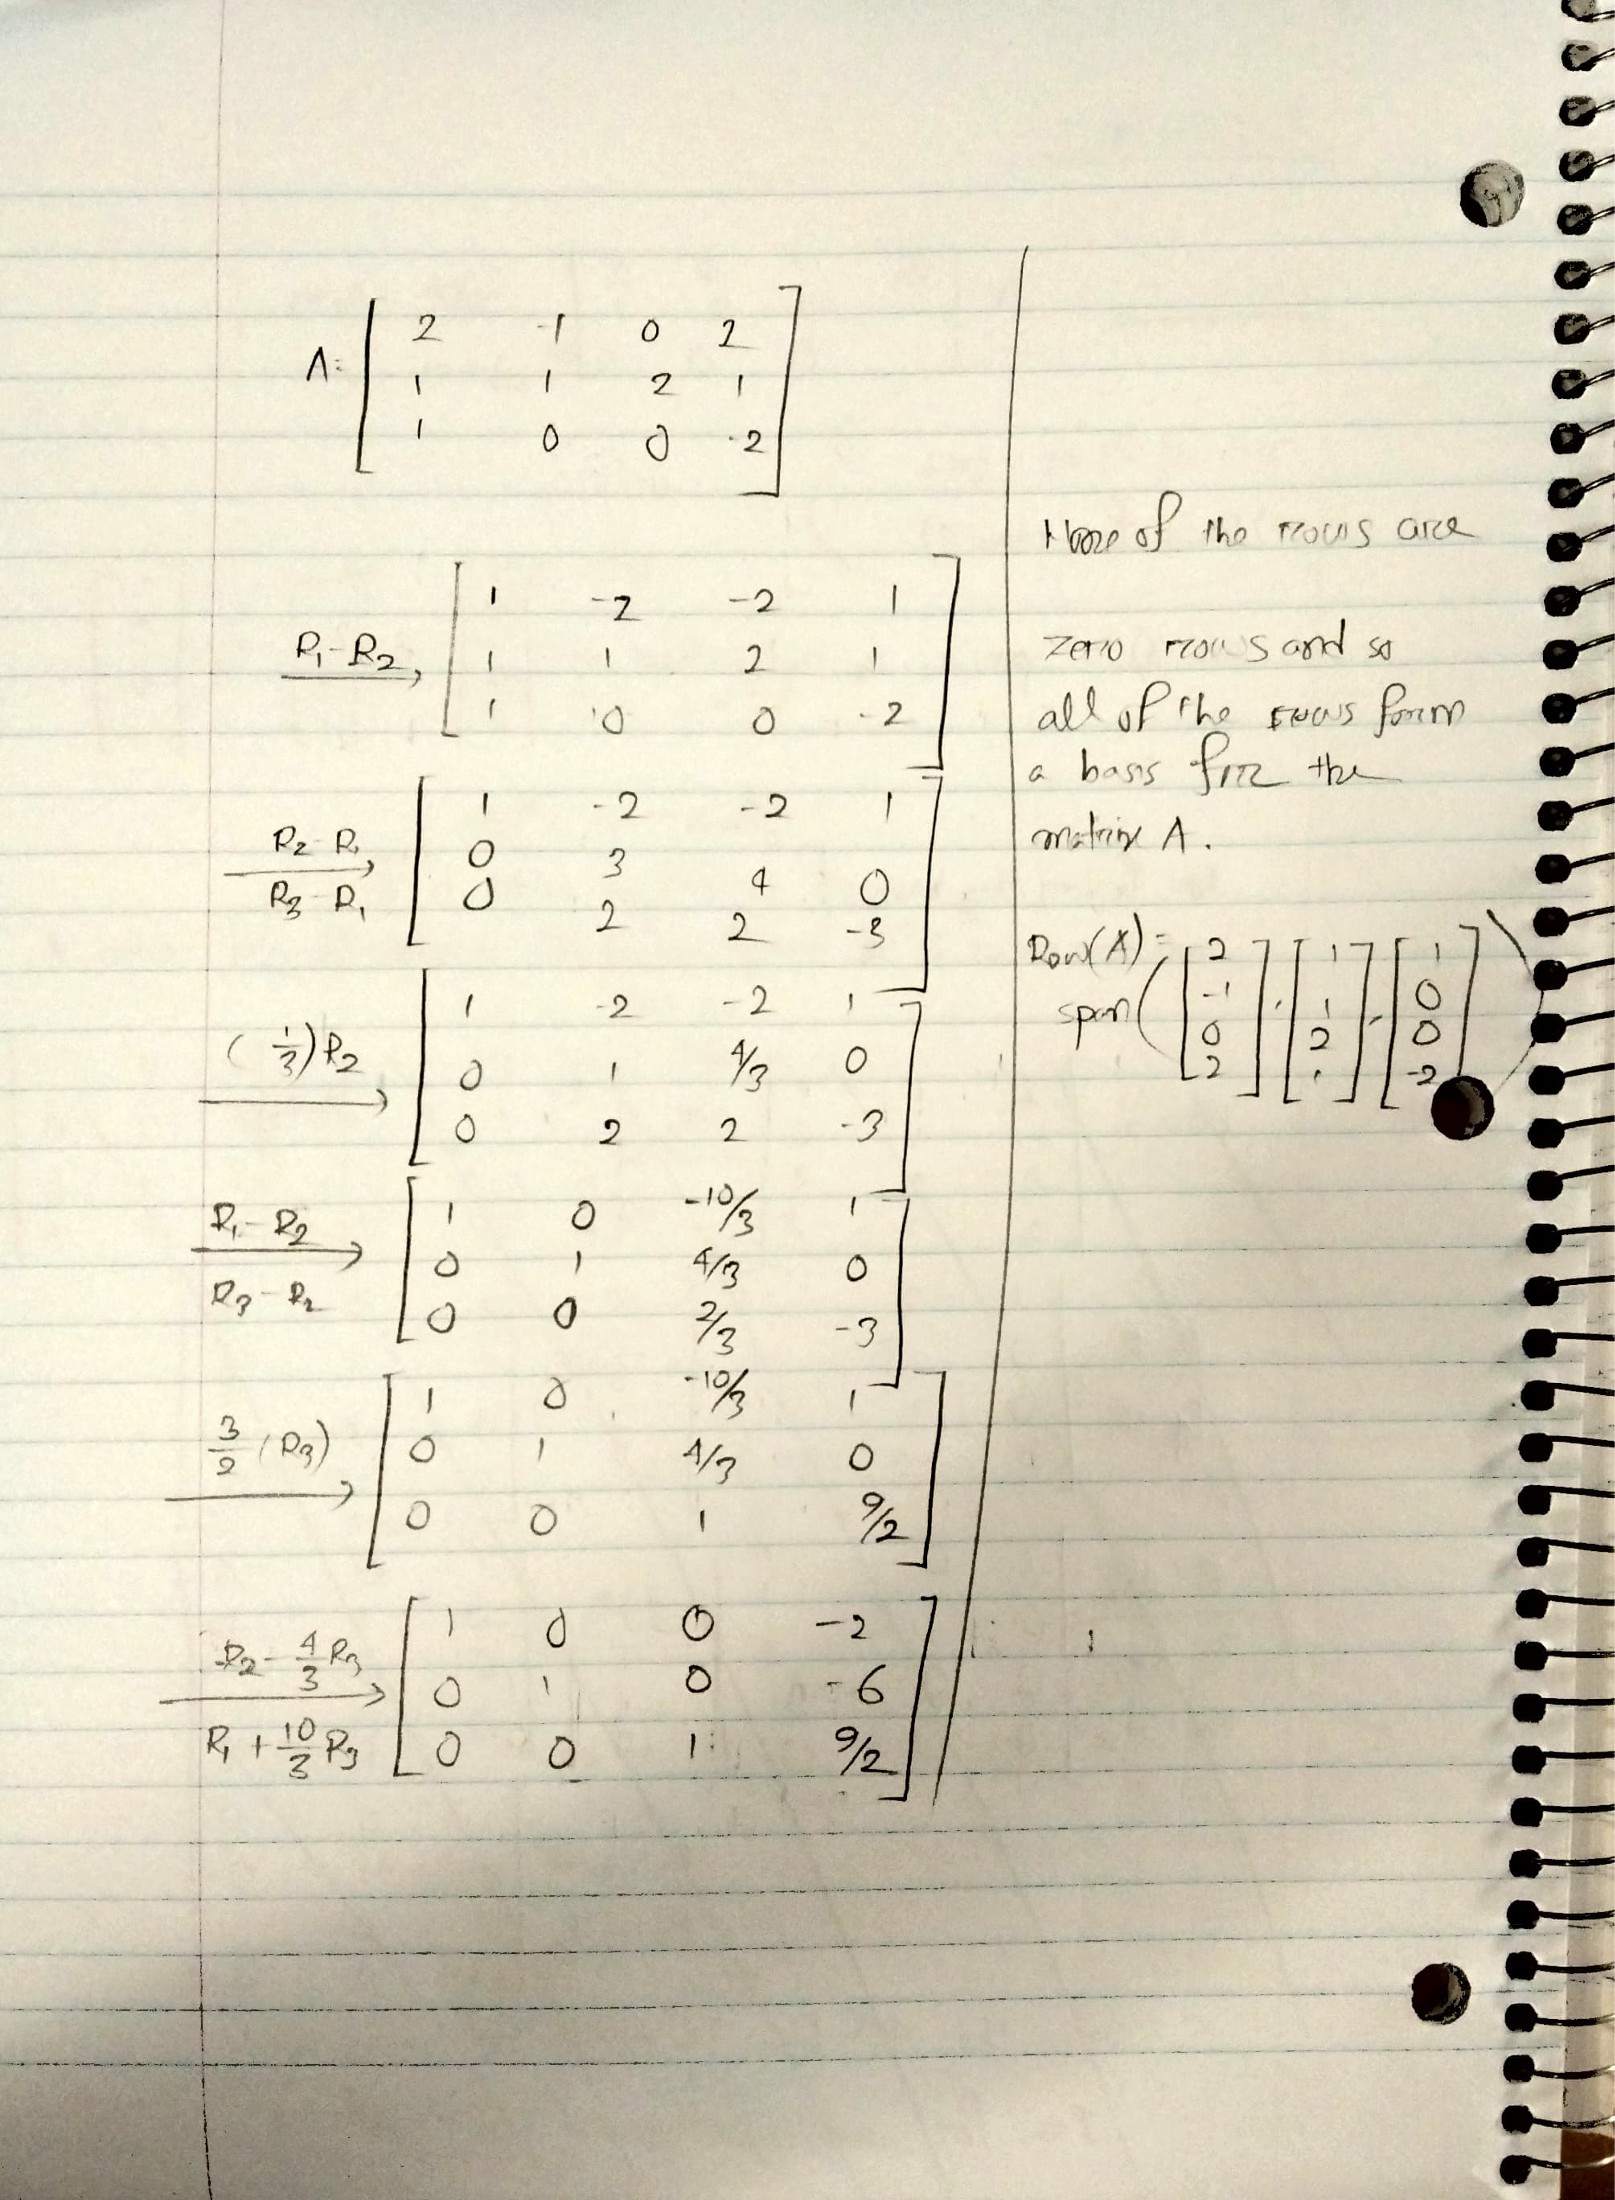 A = [ 2 -1 0 2
1 1 2 1
1 0 0 -2 ]
R1 - R2 → [ 1 -2 -2 1
1 1 2 1
1 0 0 -2 ]
R2 - R1
R3 - R1 → [ 1 -2 -2 1
0 3 4 0
0 2 2 -3 ]
(1/3)R2 → [ 1 -2 -2 1
0 1 4/3 0
0 2 2 -3 ]
R1 - R2
R3 - R2 → [ 1 0 -10/3 1
0 1 4/3 0
0 0 2/3 -3 ]
3/2 (R3) → [ 1 0 -10/3 1
0 1 4/3 0
0 0 1 9/2 ]
R2 - 4/3 R3
R1 + 10/3 R3 → [ 1 0 0 -2
0 1 0 -6
0 0 1 9/2 ]
None of the rows are
zero rows and so
all of the rows form
a basis for the
matrix A.
Row(A) =
span ( [ 2 -1 0 2 ] , [ 1 1 2 1 ] , [ 1 0 0 -2 ] )